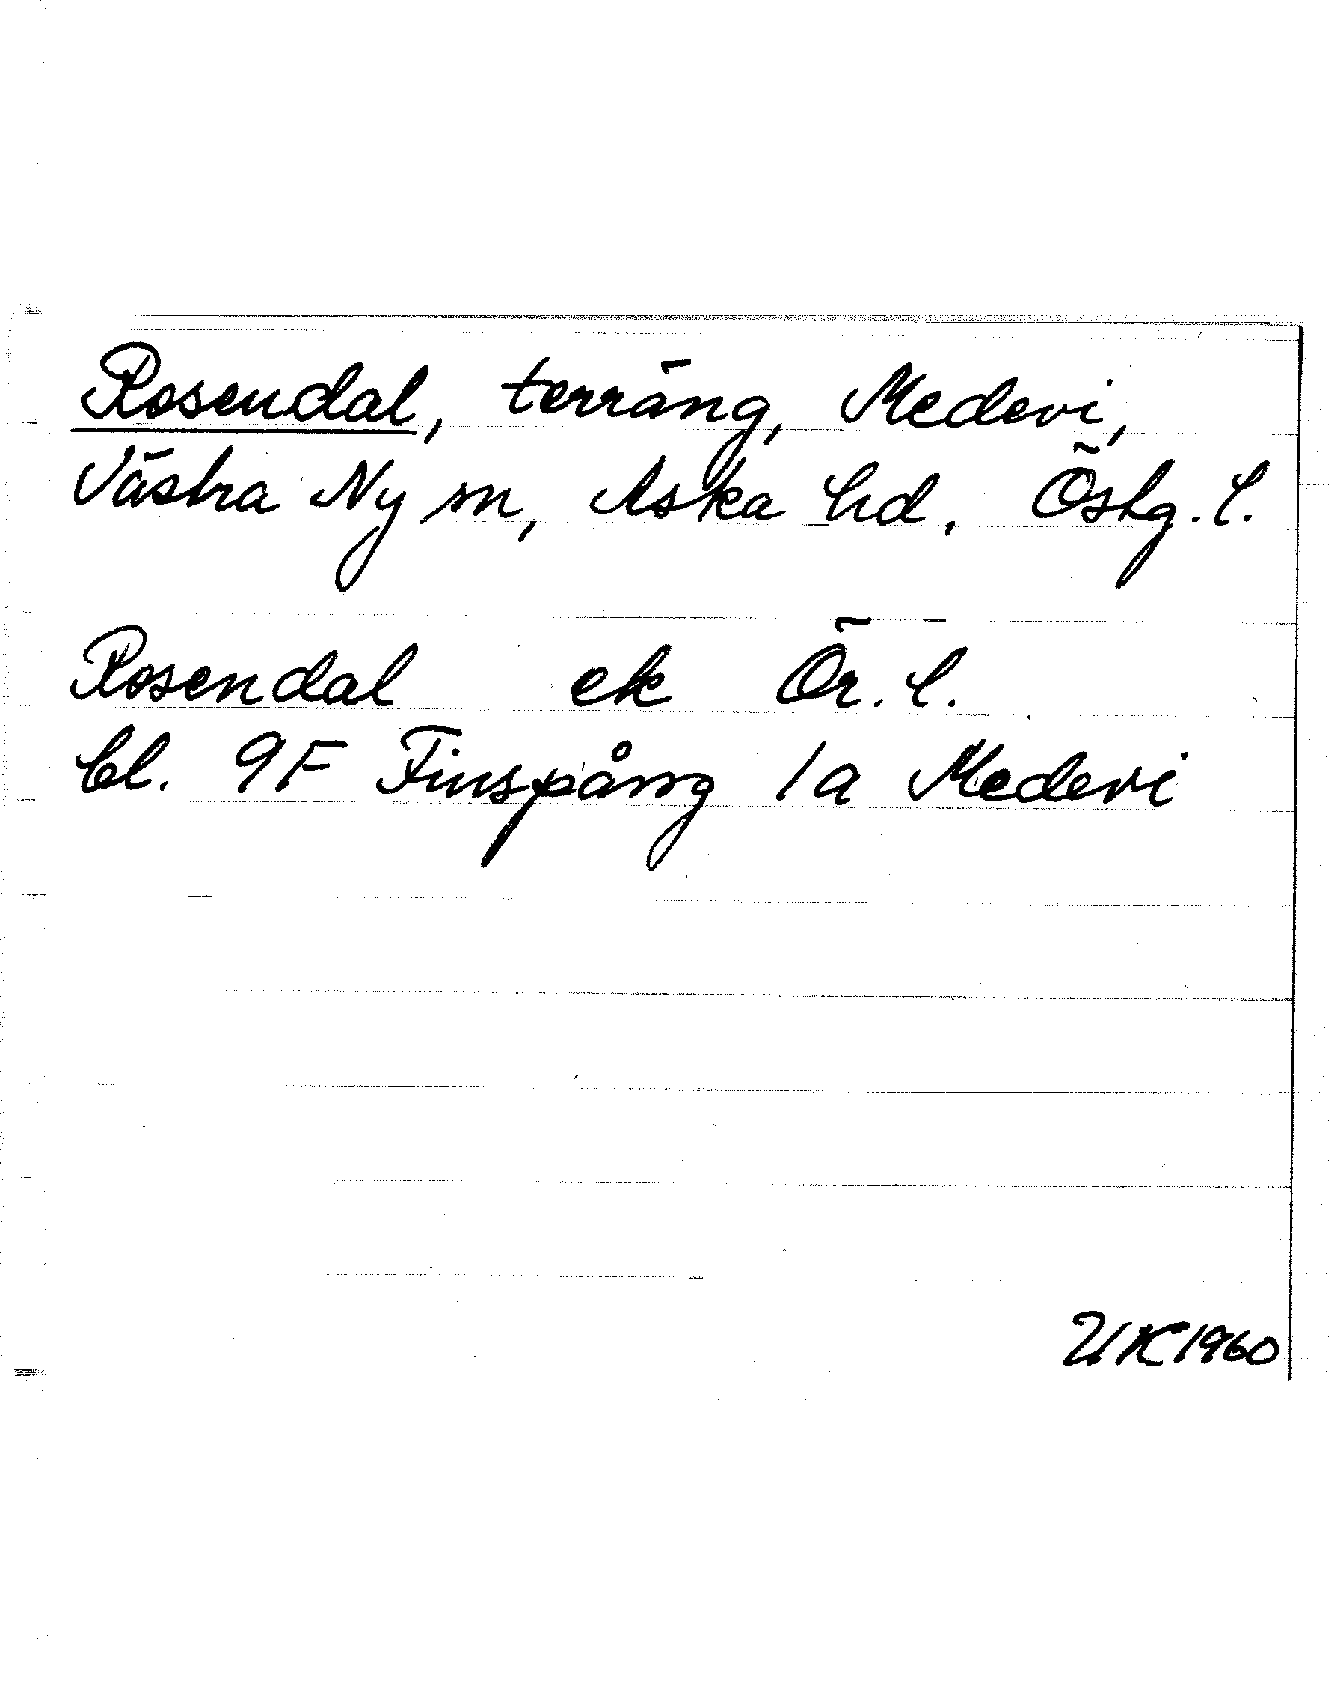 Rosendal, terräng, Medevi,
Västra Ny sn, Aska hd. Östg. l.
Rosendal ek Ör. l.
bl. 9F Finspång 1a Medevi
UK 1960